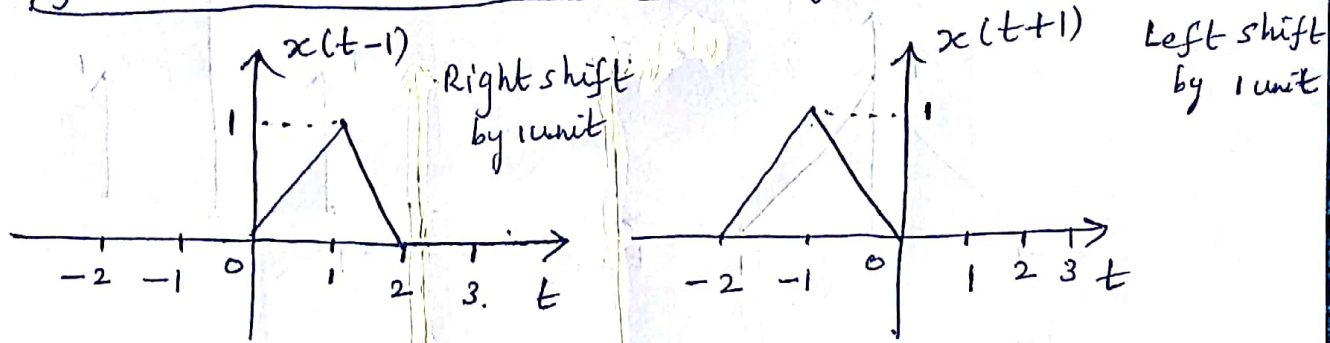 x(t-1)
Right shift
by 1 unit
1
-2 -1 0 1 2 3. t
x(t+1)
Left shift
by 1 unit
1
-2 -1 0 1 2 3 t